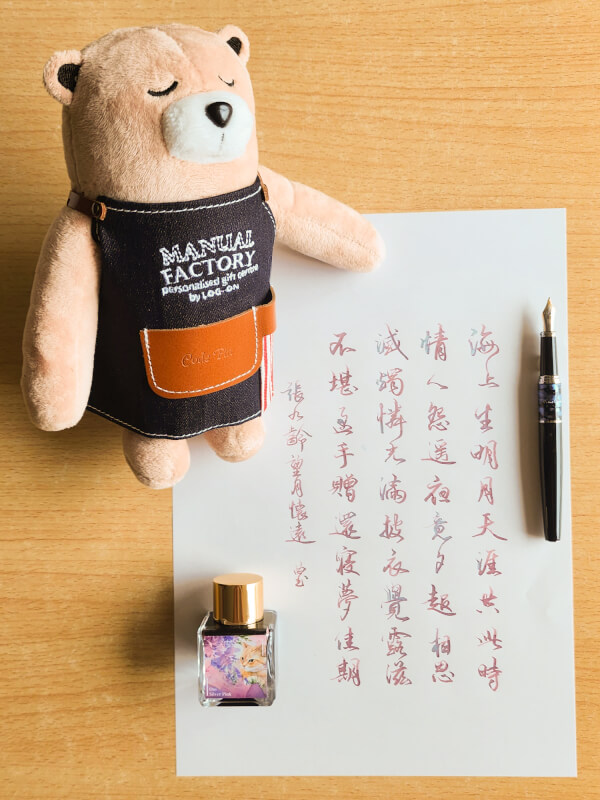 MANUAL
FACTORY
personalised gift centre
by LOG-ON
海上生明月天涯共此時
情人怨遥夜竟夕起相思
滅燭憐光滿披衣覺露滋
不堪盈手贈還寢夢佳期
張九齡望月懷遠